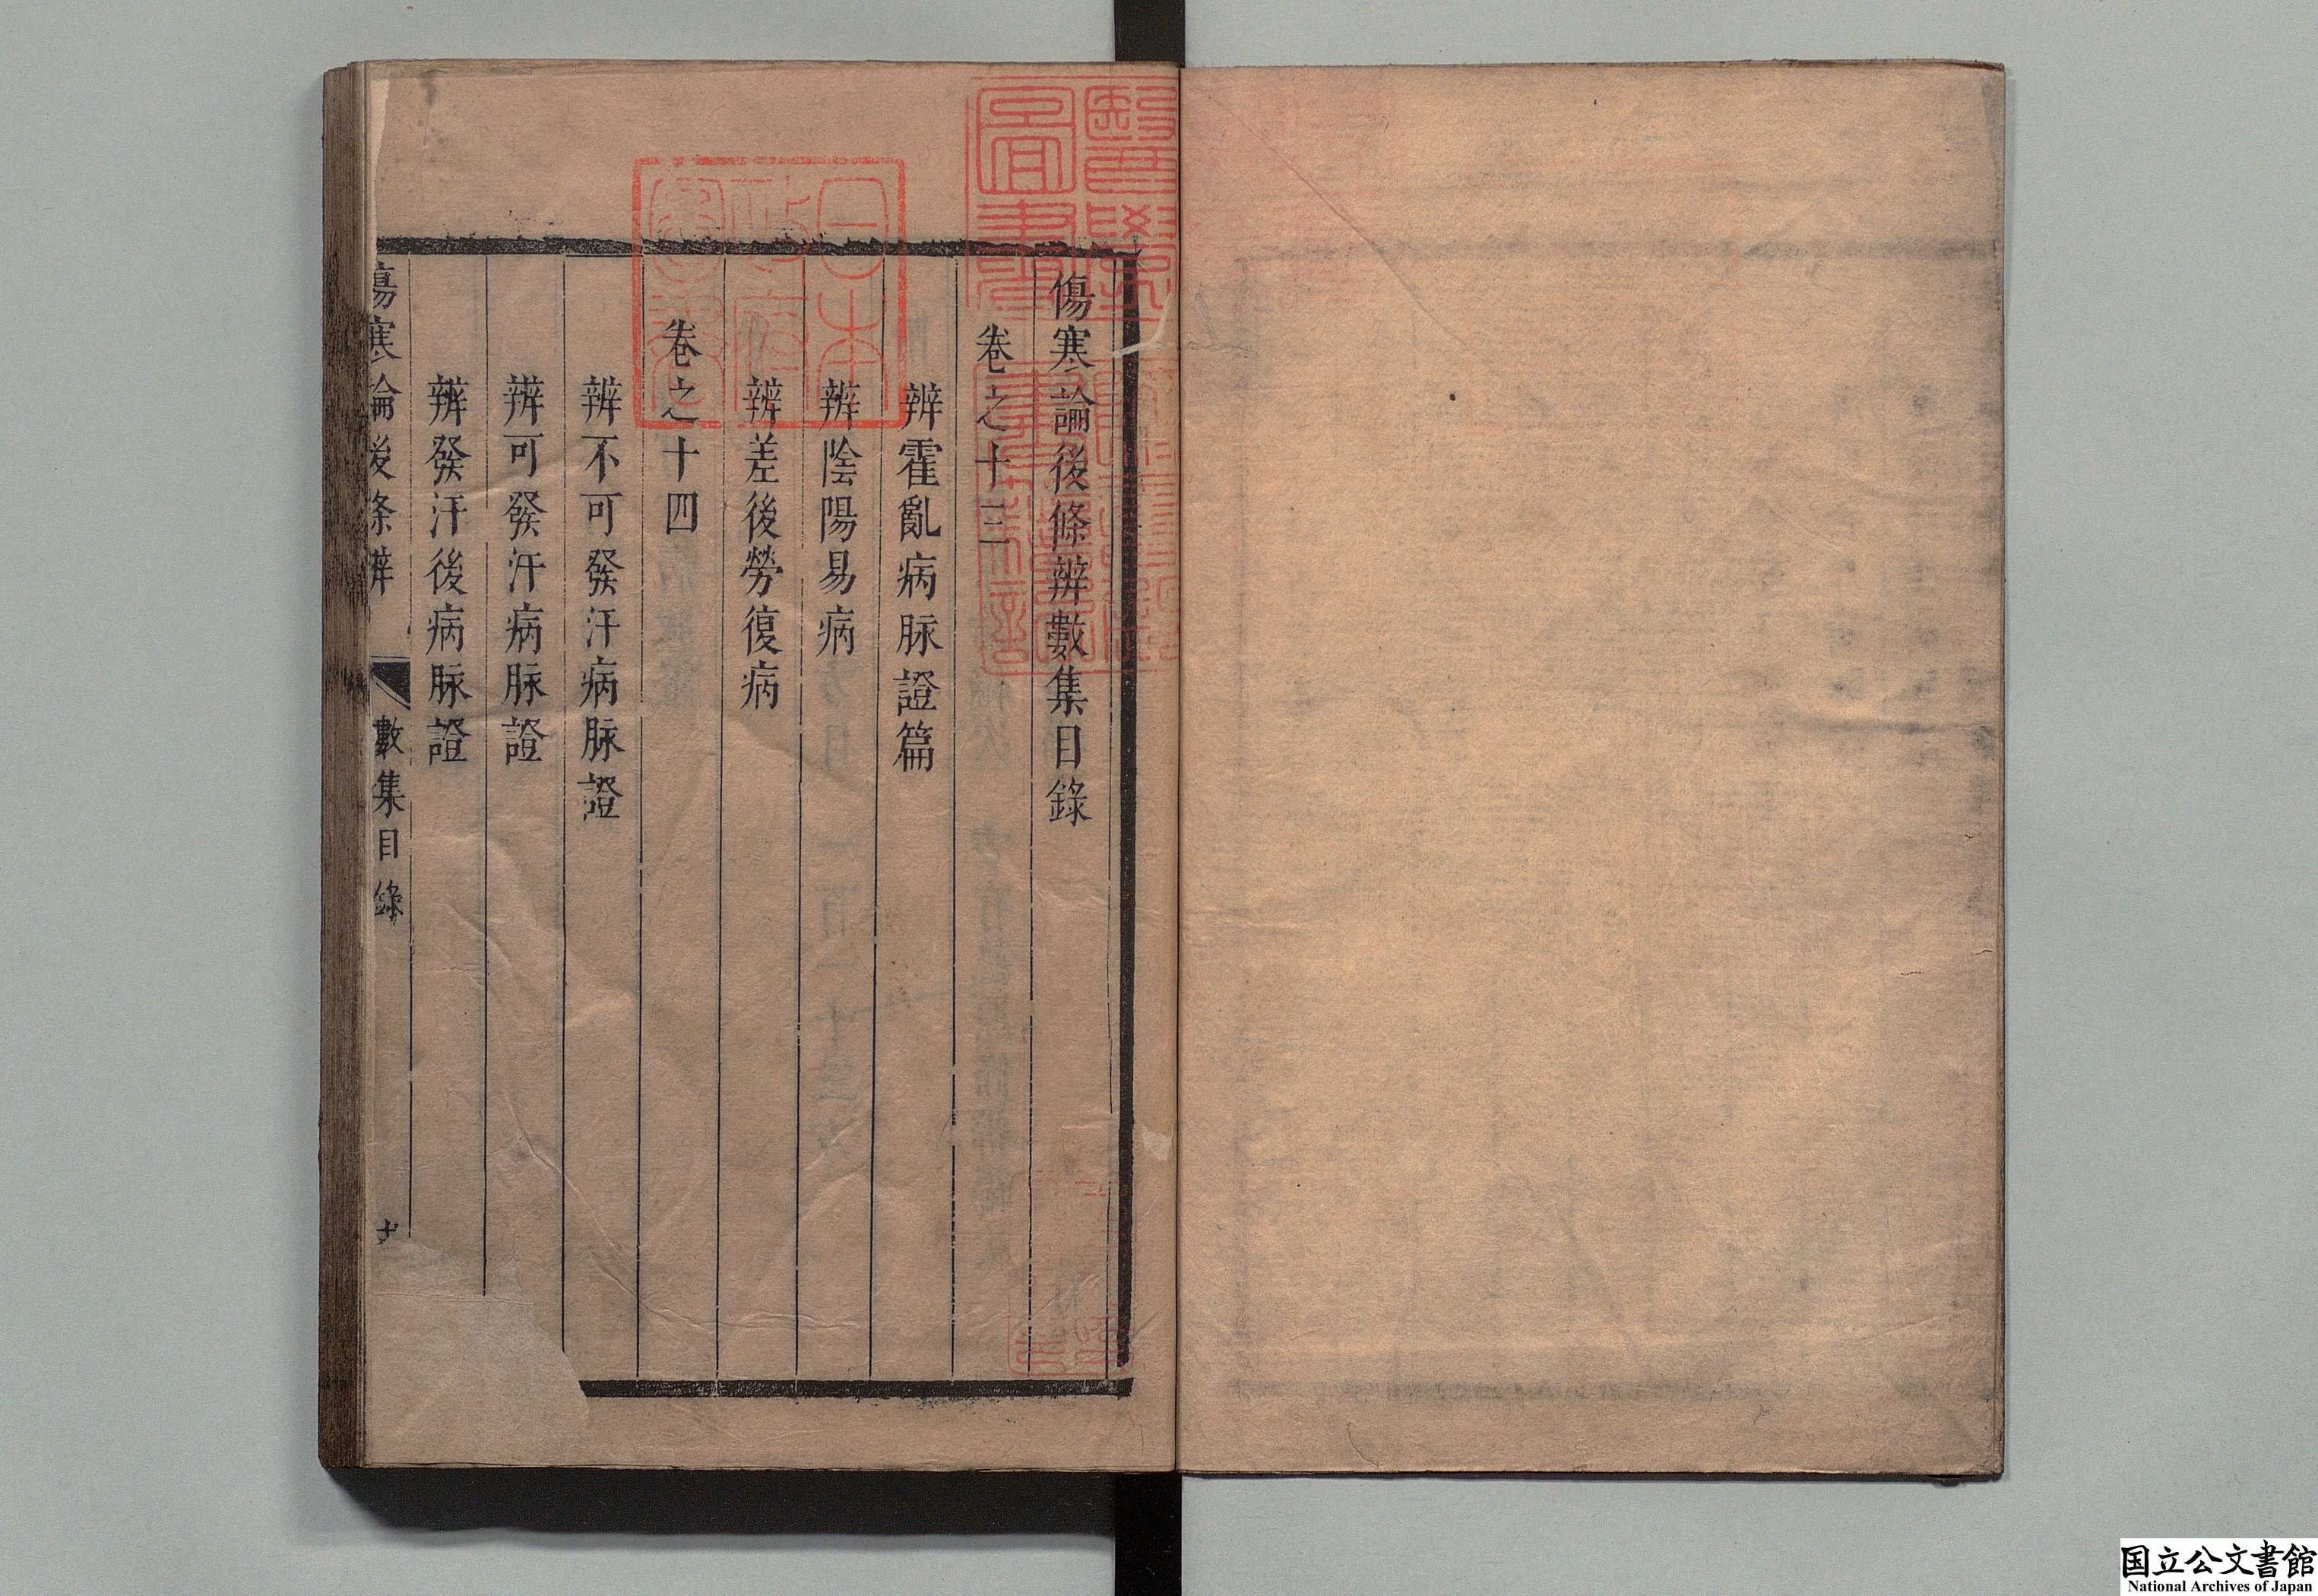 傷寒論後條辨數集目錄
卷之十三
辨霍亂病脉證篇
辨陰陽易病
辨差後勞復病
卷之十四
辨不可發汗病脉證
辨可發汗病脉證
辨發汗後病脉證
傷寒論後條辨
數集目錄
日本政府圖書
醫學圖書
国立公文書館
National Archives of Japan